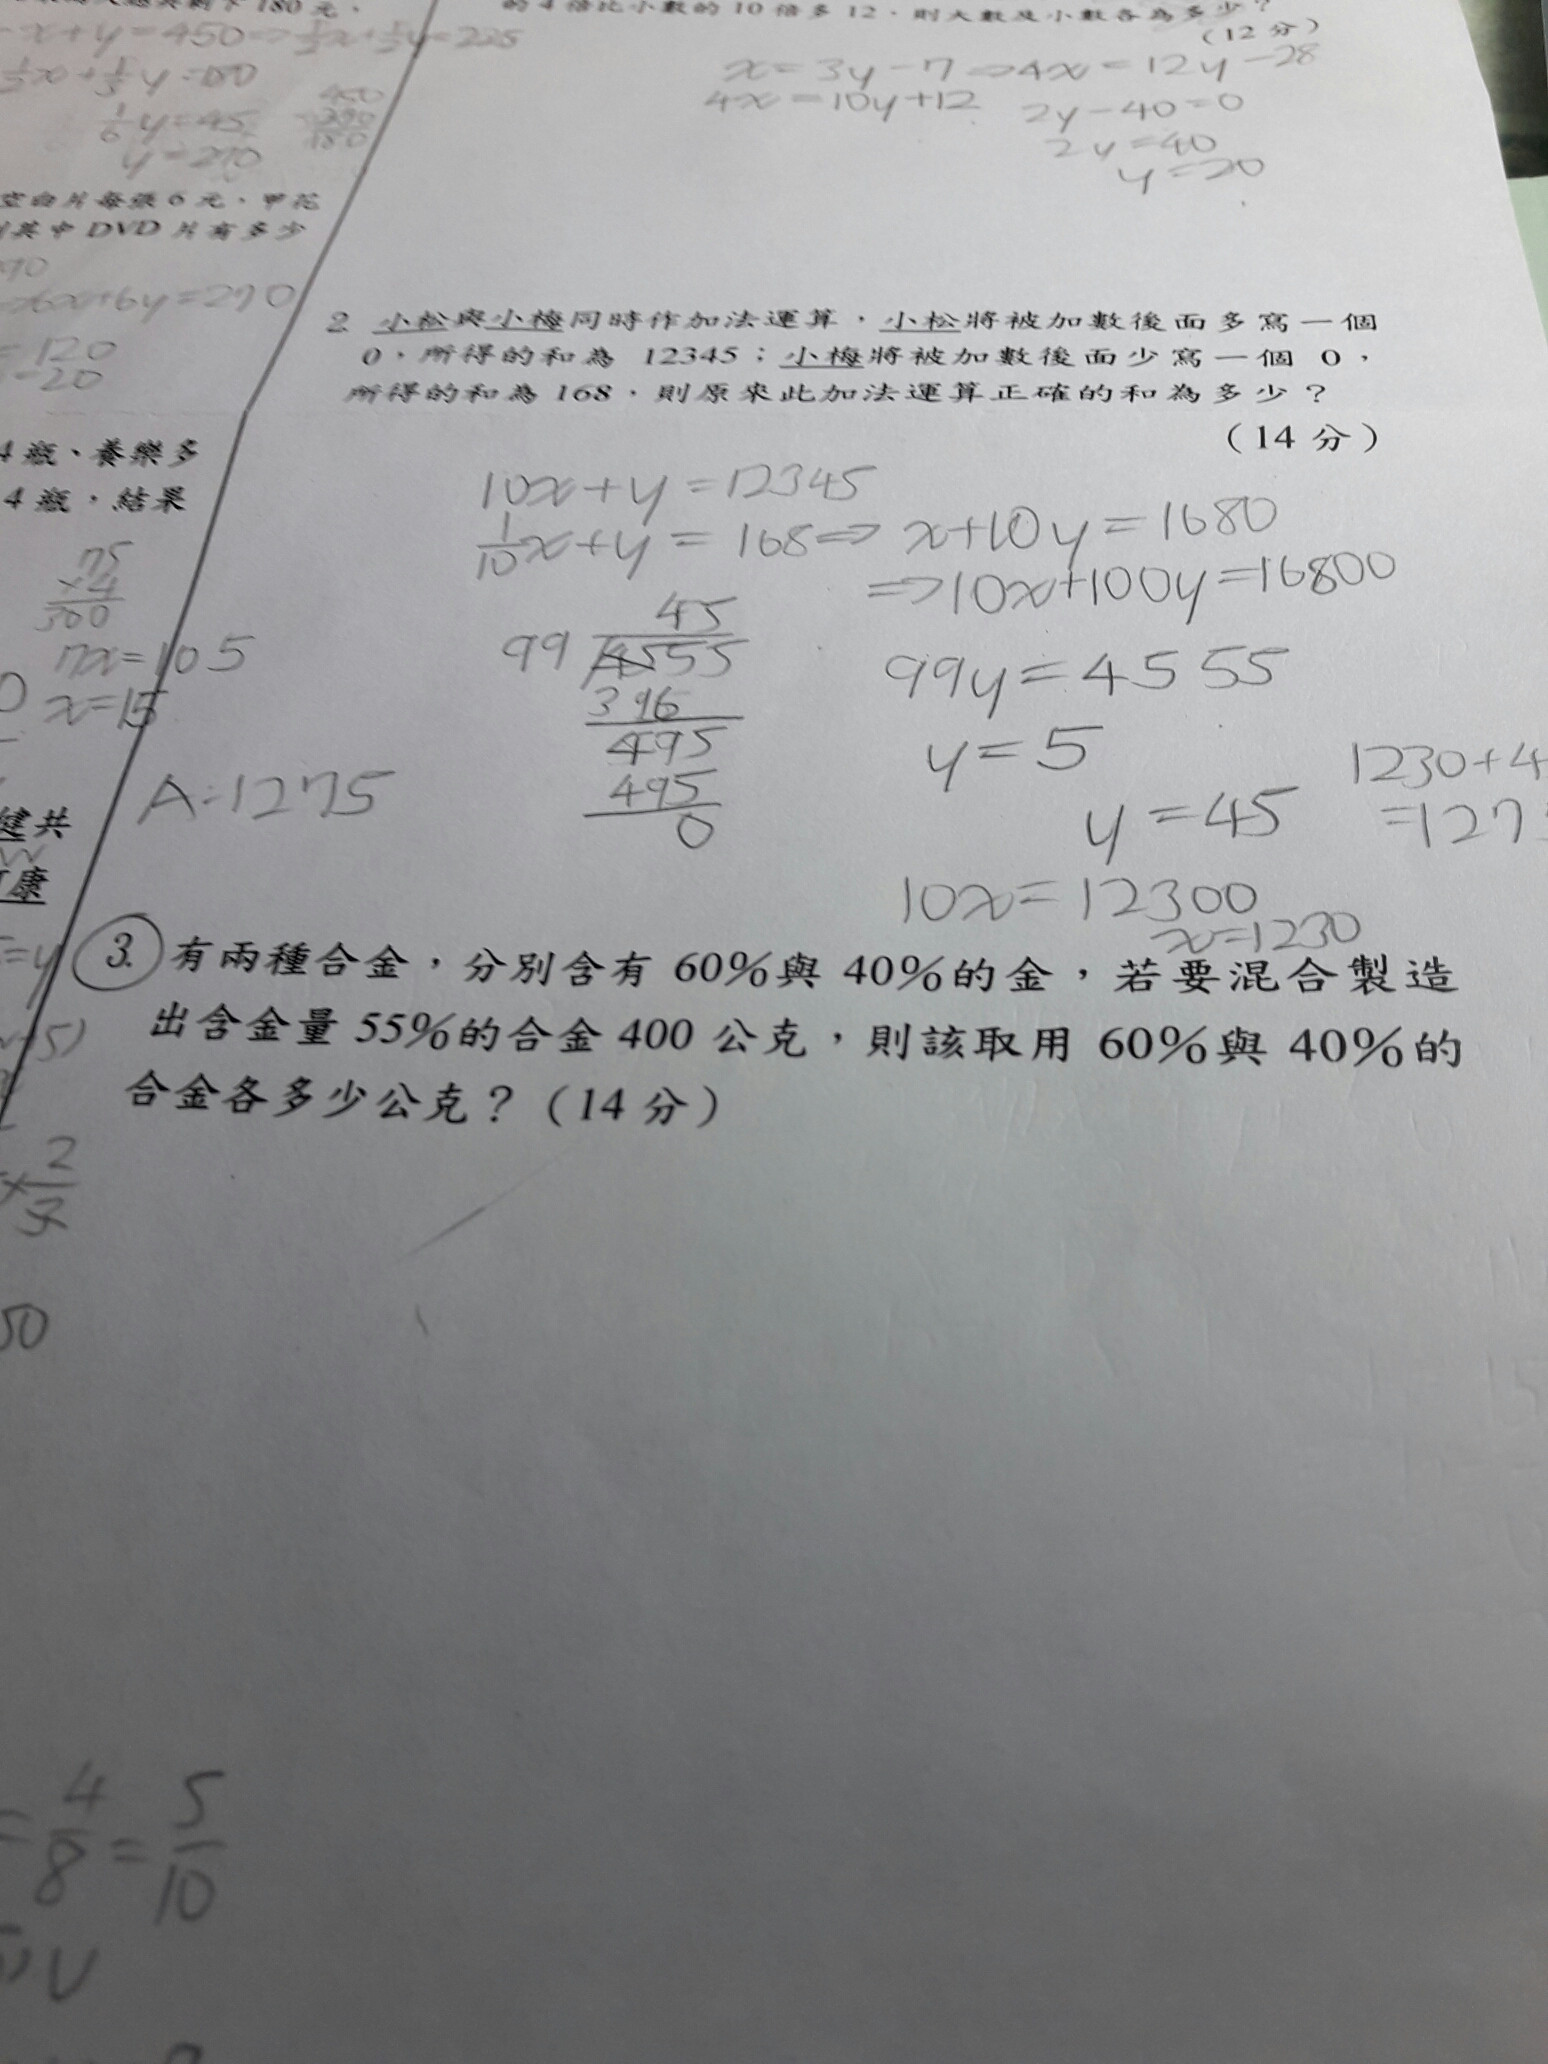 180元，
x+y=450⇒½x+½y=225
⅓y=180
⅙y=45
y=270
450
180
的4倍比小數的10倍多12，則大數及小數各為多少？
（12分）
x=3y-7⇒4x=12y-28
4x=10y+12
2y-40=0
2y=40
y=20
空白片每張6元，甲花
其中DVD片有多少
6x+6y=270
=120
20
2. 小松與小梅同時作加法運算，小松將被加數後面多寫一個
0，所得的和為 12345；小梅將被加數後面少寫一個 0，
所得的和為 168，則原來此加法運算正確的和為多少？
（14分）
4瓶、養樂多
4瓶，結果
75
×4
300
7x=105
x=15
10x+y=12345
1/10x+y=168⇒x+10y=1680
⇒10x+100y=16800
45
99 4555
396
495
495
0
99y=4555
y=5
y=45
1230+4
=127
10x=12300
x=1230
A:1275
健共
康
=y
5)
3. 有兩種合金，分別含有 60%與 40%的金，若要混合製造
出含金量 55%的合金 400 公克，則該取用 60%與 40%的
合金各多少公克？（14分）
×2/3
50
=4/8=5/10